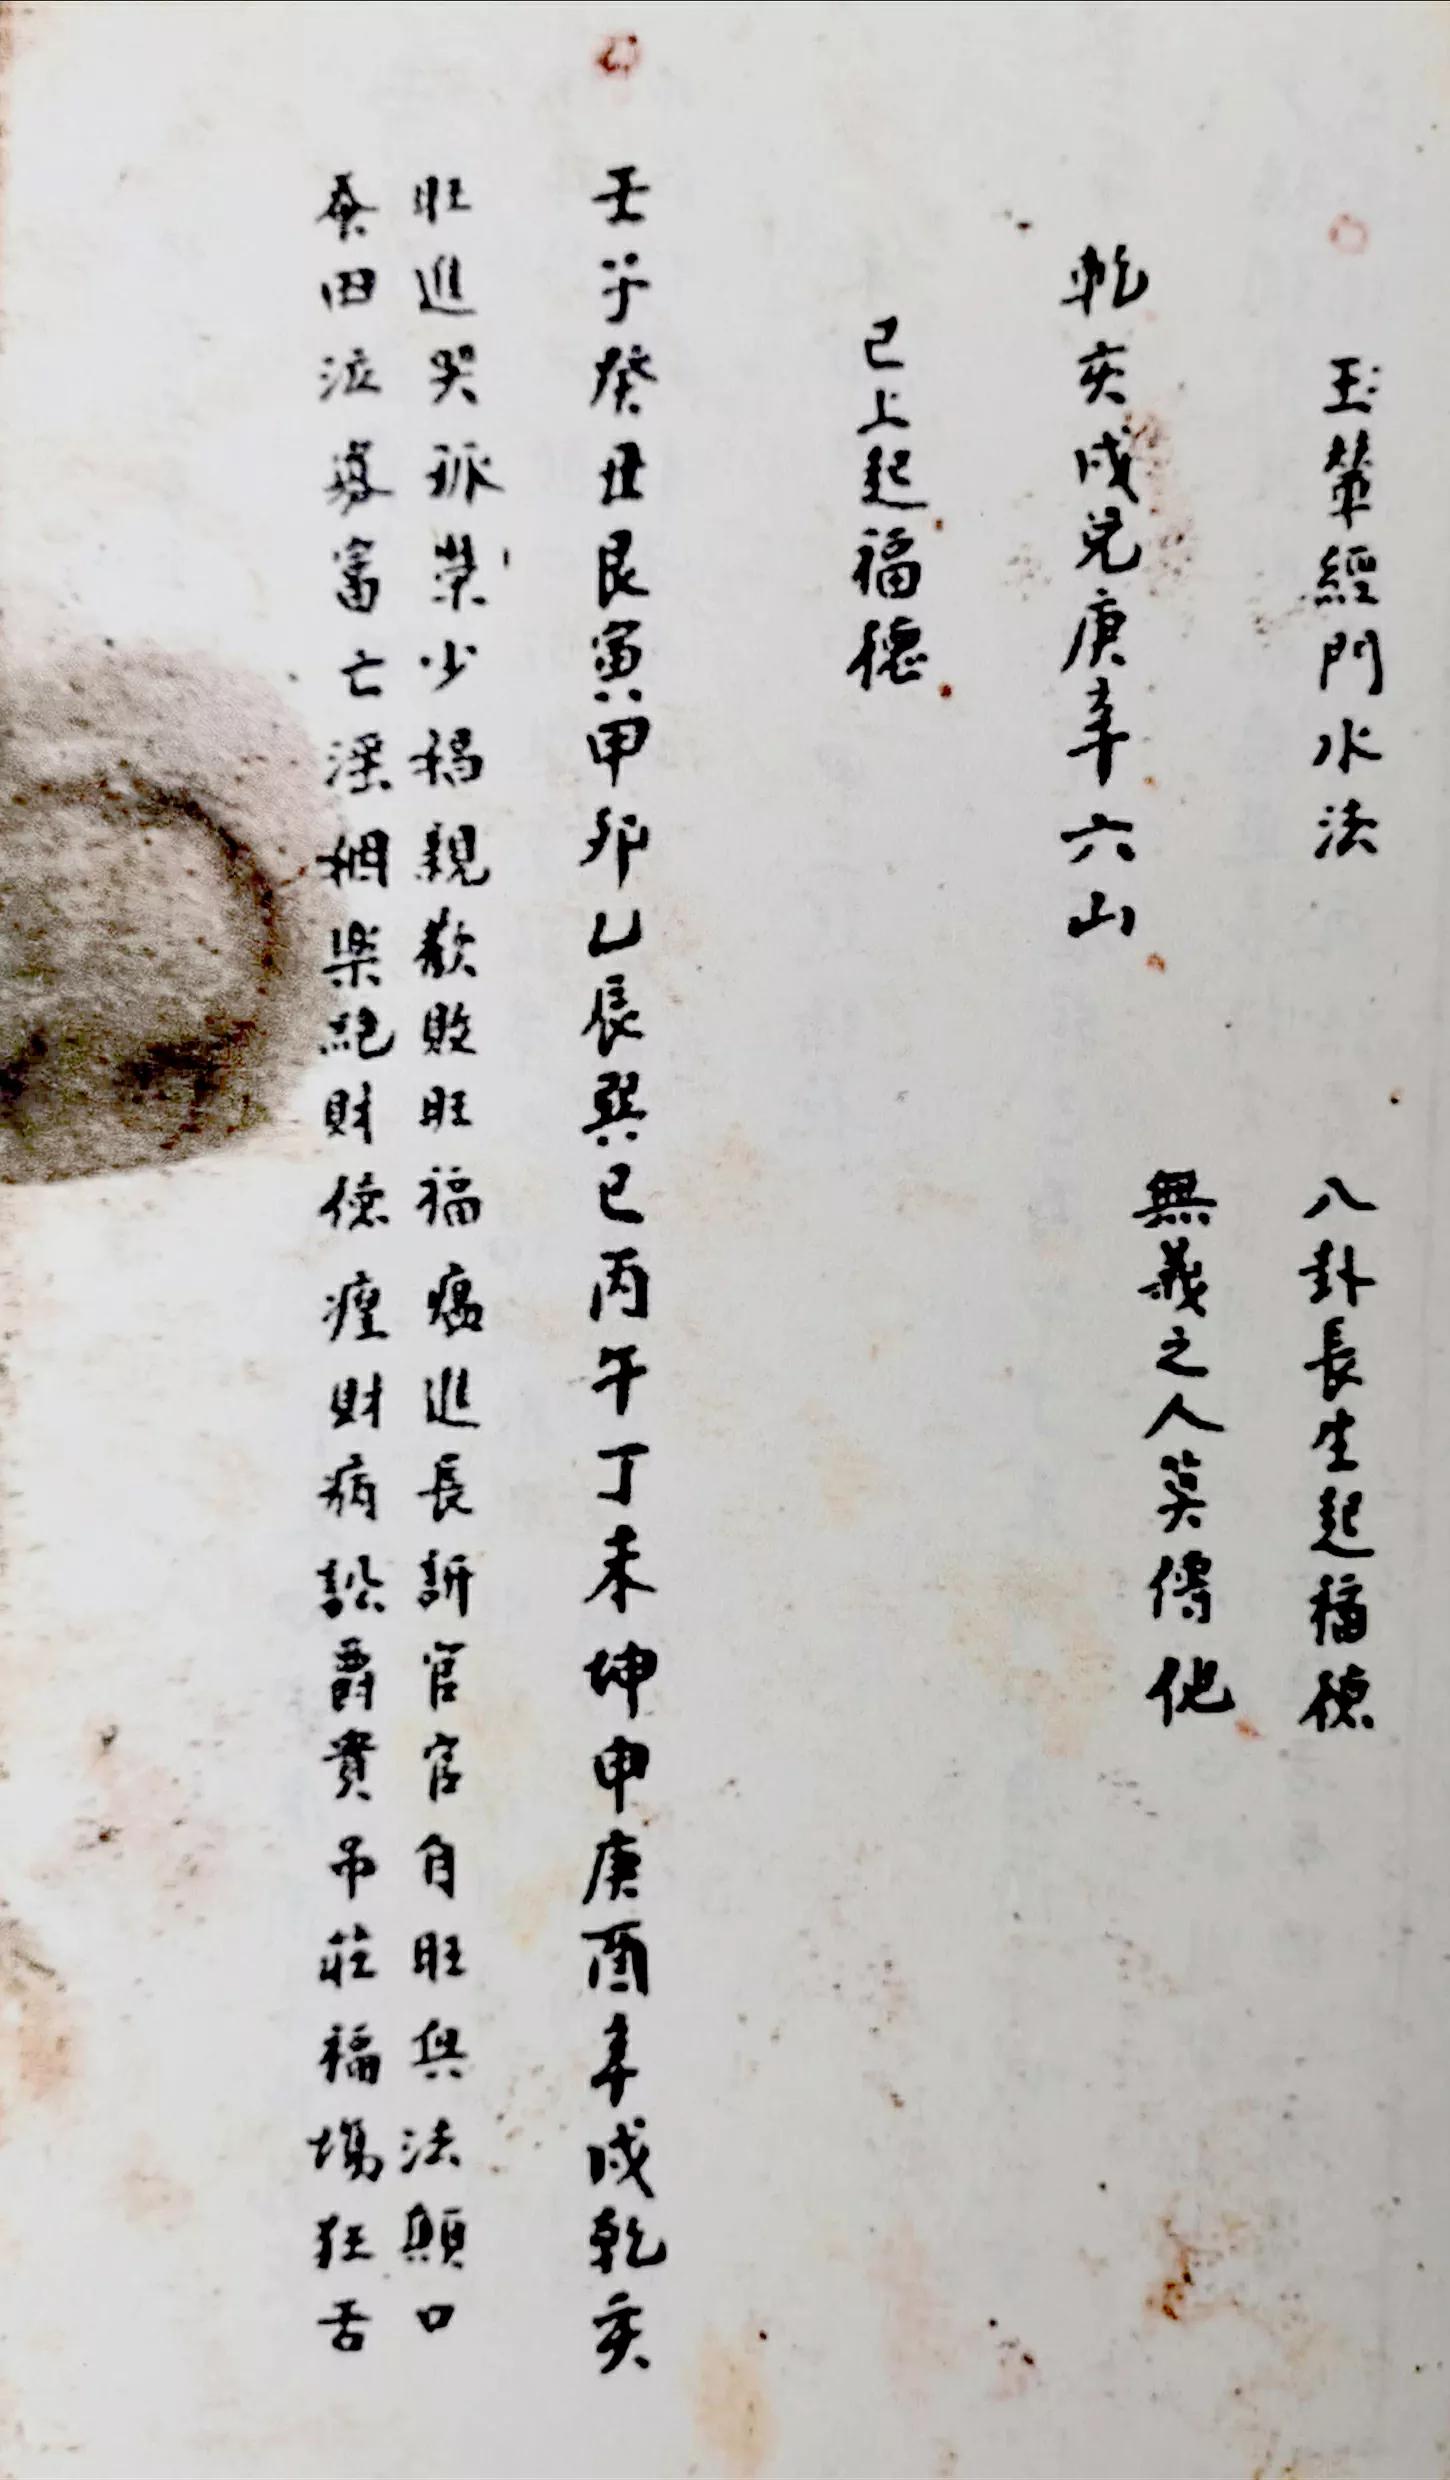 玉輦經門水法
八卦長生起福德
無義之人莫傳他
乾亥戌兌庚辛六山
已上起福德
壬子癸丑艮寅甲卯乙辰巽巳丙午丁未坤申庚酉辛戌乾亥
旺進哭孤榮少禍親歡敗旺福瘟進長訴官官自旺與法顛口
蚕田泣寡富亡淫姻樂絕財德瘽財病訟爵貴吊莊福場狂舌